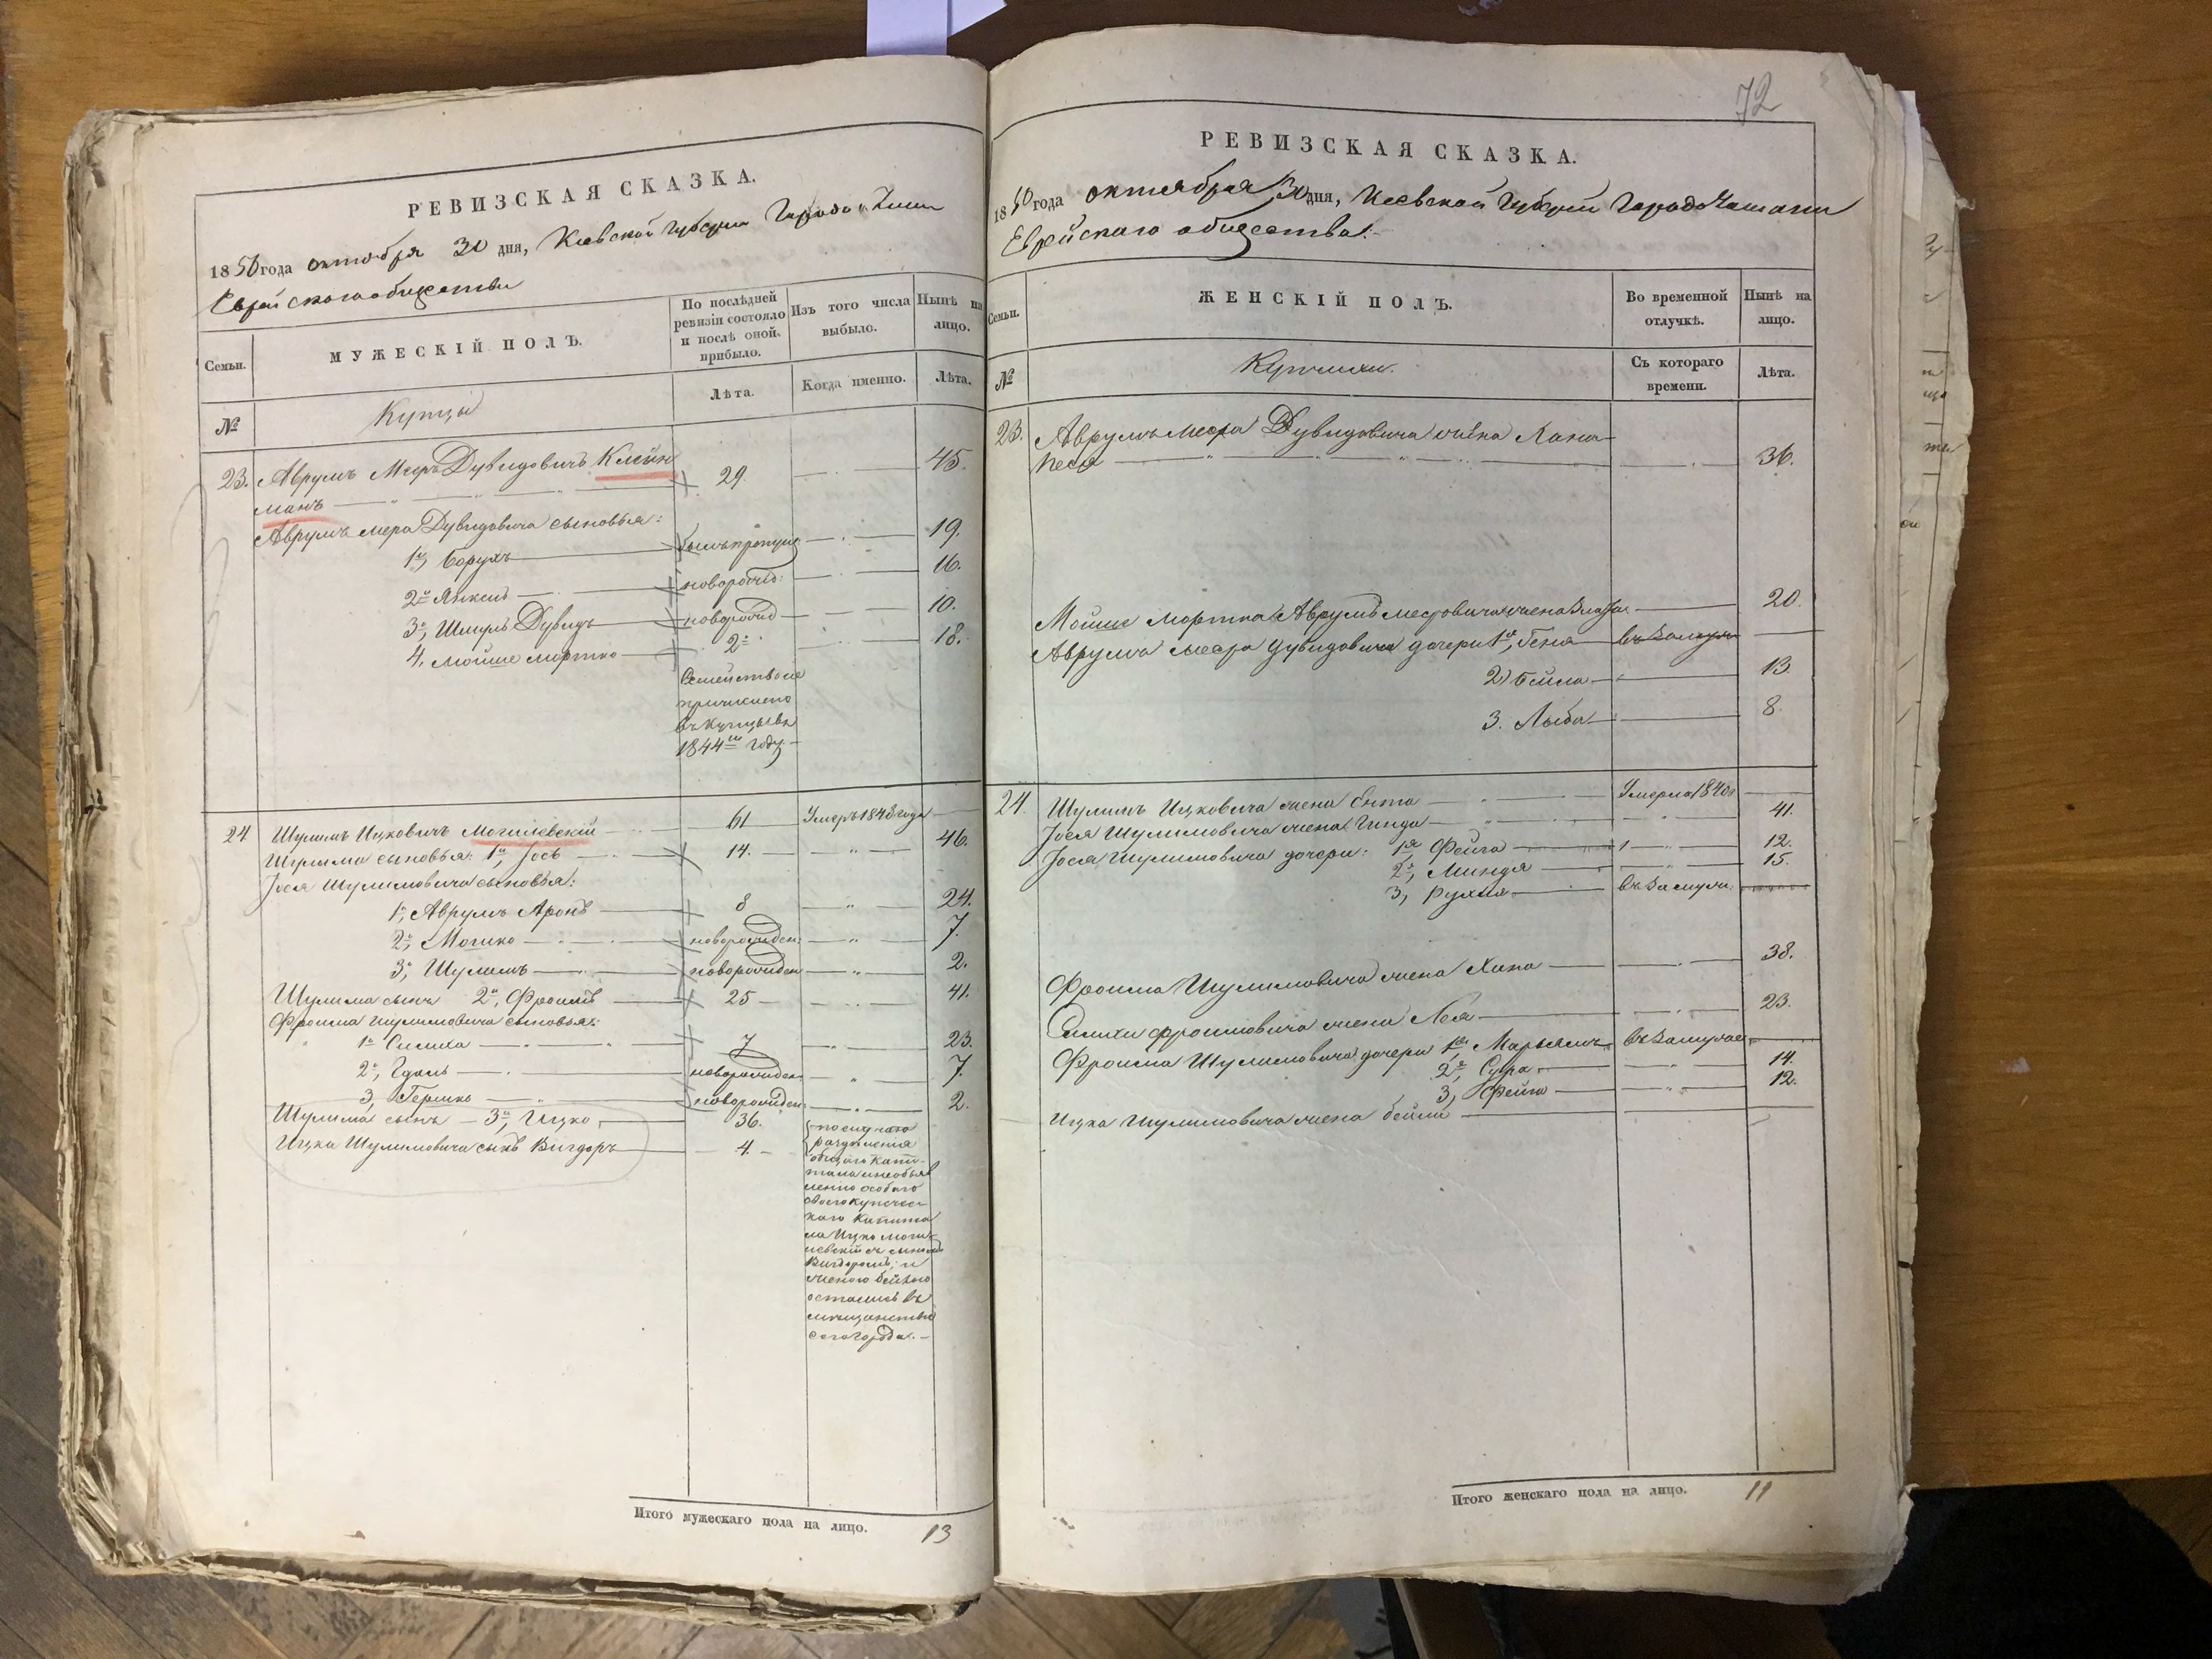 РЕВИЗСКАЯ СКАЗКА.
1850 года октября 30 дня, Киевской Губернии Города
Еврейского общества
Семьи.
МУЖЕСКІЙ ПОЛЪ.
По послѣдней ревизіи состояло и послѣ оной прибыло.
Изъ того числа выбыло.
Нынѣ на лицо.
№
Купцы
Лѣта.
Когда именно.
Лѣта.
23. Аврумъ Меръ Дувидовичъ Клейн 29. 45.
манъ
Аврумъ мера Дувидовича сыновья:
1й, Борухъ былъ пропущ. 19.
2й Янкель новорожд: 16.
3й, Шмуль Дувидъ новорожд 10.
4, Мойше Мортко 2 18.
Семейство сіе
причислено
въ купцы въ
1844мъ году.
24 Шулимъ Ицковичъ Могилевскій 61 Умеръ 1848 года
Шулима сыновья: 1й, Іось 14. 46.
Іося Шулимовича сыновья:
1й, Аврумъ Аронъ 8 24.
2й, Мошко новорожден: 7.
3й, Шулимъ новорожден 2.
Шулима сынъ 2й, Фроимъ 25 41.
Фроима Шулимовича сыновья:
1й Симха 7 23.
2й, новорожден: 7.
3, Гершко новорожден: 2.
Шулима сынъ 3й, Ицко 36.
Ицка Шулимовича сынъ Вигдоръ 4.
по случаю
раздѣленія
общаго капи-
тала и необъяв
ленію особаго
своего купечес-
каго капита
ла Ицко Моги-
левскій съ сыномъ
Вигдоромъ, и
женою Бейлою
остались въ
мещанствѣ
сего города.
Итого мужескаго пола на лицо. 13
72
РЕВИЗСКАЯ СКАЗКА.
1850 года октября 30 дня, Киевской Губерніи Города
Еврейскаго общества.
Семьи.
ЖЕНСКІЙ ПОЛЪ.
Во временной отлучкѣ.
Нынѣ на лицо.
№
Съ котораго времени.
Лѣта.
23. Аврумъ Мера Дувидовича жена Хана
Песя 36.
Мойше Мортка Аврумъ Меровича жена Злата 20.
Аврумъ Мера Дувидовича дочери 1я, Геня въ замуж.
2) Бейла 13.
3. Либа 8.
24. Шулимъ Ицковича жена Ента Умерла 1840
Іося Шулимовича жена Гинда 41.
Іося Шулимовича дочери: 1я Фейга 12.
2я, Миндя 15.
3, Рухля въ замуж.
Фроима Шулимовича жена Хана 38.
Симхи Фроимовича жена Лея 23.
Фроима Шулимовича дочери 1я, Марьямъ въ замуже
2я, Сура 14.
3, Фейга 12.
Ицка Шулимовича жена Бейла
Итого женскаго пола на лицо. 11